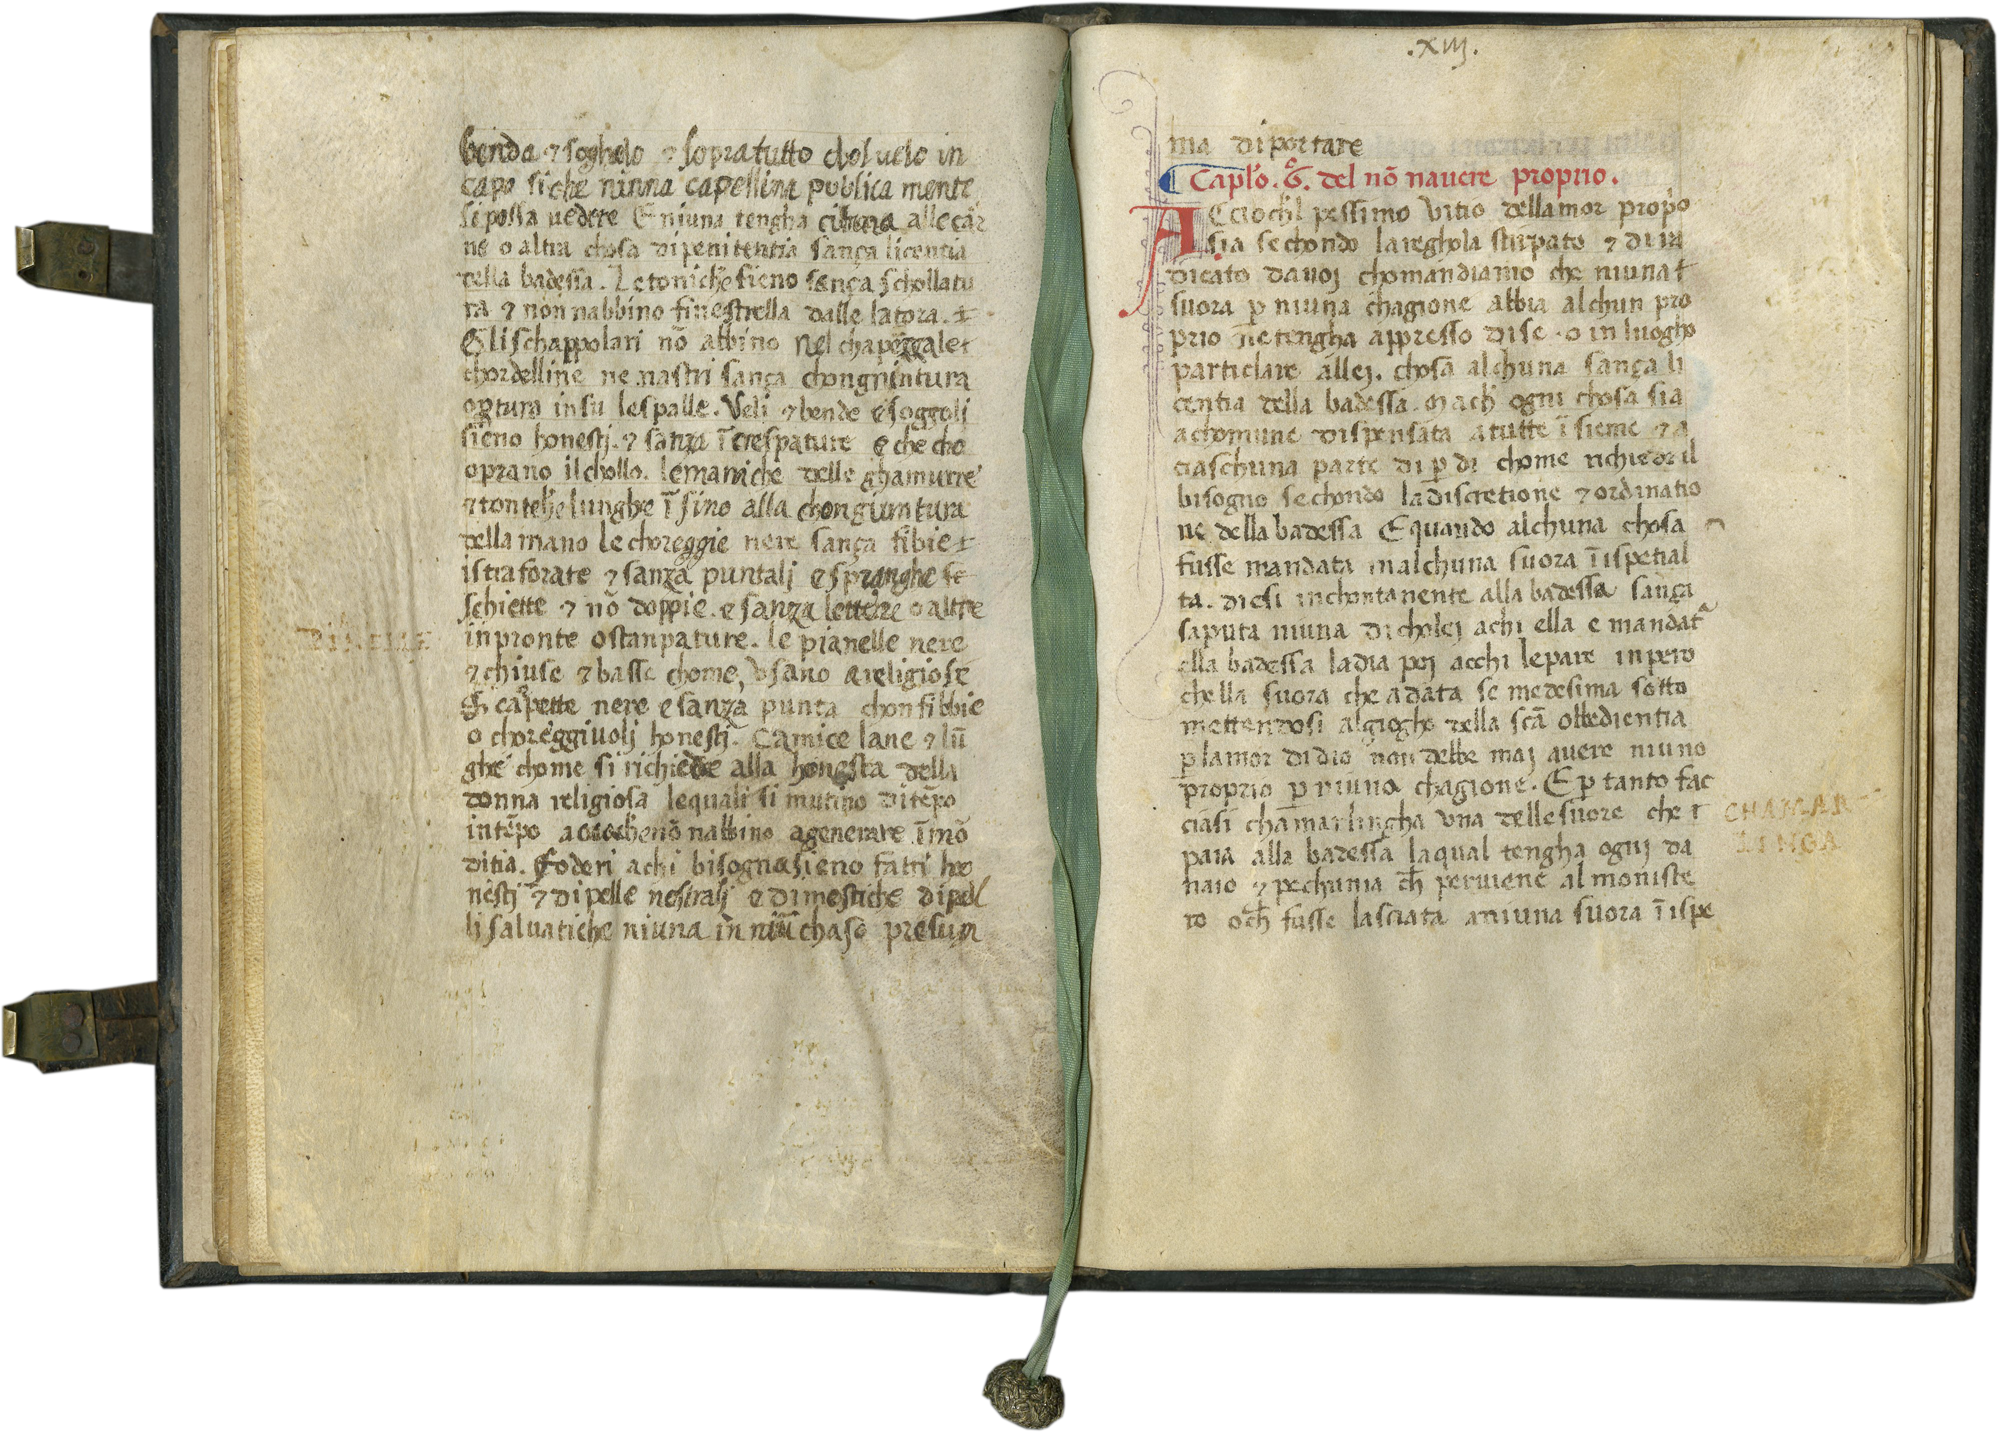 benda ⁊ sogholo ⁊ sopra tutto chol uelo in
capo si che niuna capellina publica mente
si possa uedere E niuna tengha cilicio alle car
ne o altra chosa di penitentia sança licentia
della badessa. Le toniche sieno sança schollatu
ra ⁊ non nabbino finestrella dalle latora.
Gli schappolari nō abbino nel chapezzale
chordelline ne nastri sança chongnintura
in su le spalle. Veli ⁊ bende e soggoli
sieno honestj. ⁊ sanza ī crespature e che cho
oprano il chollo. le maniche delle ghamurre
⁊ toniche lunghe ī sino alla chongiuntura
della mano le choreggie nere sança fibie
istraforate ⁊ sanza puntalj e spranghe
schiette ⁊ nō doppie. e sanza lettere o altre
inpronte o stanpature. le pianelle nere
⁊ chiuse ⁊ basse chome, usano a religiose
E carpette nere e sanza punta chon fibbie
o choreggiuolj honestj. Camice lane ⁊ lū
ghe chome si richiede alla honesta della
donna religiosa le quali si mutino di tēpo
in tēpo accioche nō nabbino a generare īmō
ditia. Foderi a chi bisogna sieno fatti ho
nestj ⁊ di pelle nostralj e dimestiche di pel
li saluatiche niuna in niū chaso presum
PIANELLE
.xiij.
ma di portare
Caplo. 6. del nō nauere proprio.
Acciochel pessimo Vitio dellamor proprio
sia sechondo la reghola stirpato ⁊ di ra
dicato da uoj chomandiamo che niuna
suora p niuna chagione abbia alchun pro
prio ne tengha appresso di se. o in luogho
particlare allej. chosa alchuna sança li
centia della badessa. Ma ch ogni chosa sia
a chomune dispensata a tutte ī sieme ⁊ a
ciaschuna parte di p di chome richiede il
bisogno sechondo la discretione ⁊ ordinatio
ne della badessa E quando alchuna chosa
fusse mandata in alchuna suora ī ispetial
ta. dicisi inchontanente alla badessa sança
saputa niuna di cholej a chi ella e mandata
ella badessa la dia poj a cchi le pare inpero
chella suora che a data se medesima sotto
mettendosi al giogho della scā obbedientia
p lamor di dio non debbe maj auere niuno
proprio p niuna chagione. E p tanto fac
ciasi chamarlingha Vna delle suore che
paia alla badessa la qual tengha ognj da
naio ⁊ pechunia ch peruiene al moniste
ro o ch fusse lasciata a niuna suora ī ispe
CHAMAR
LINGA